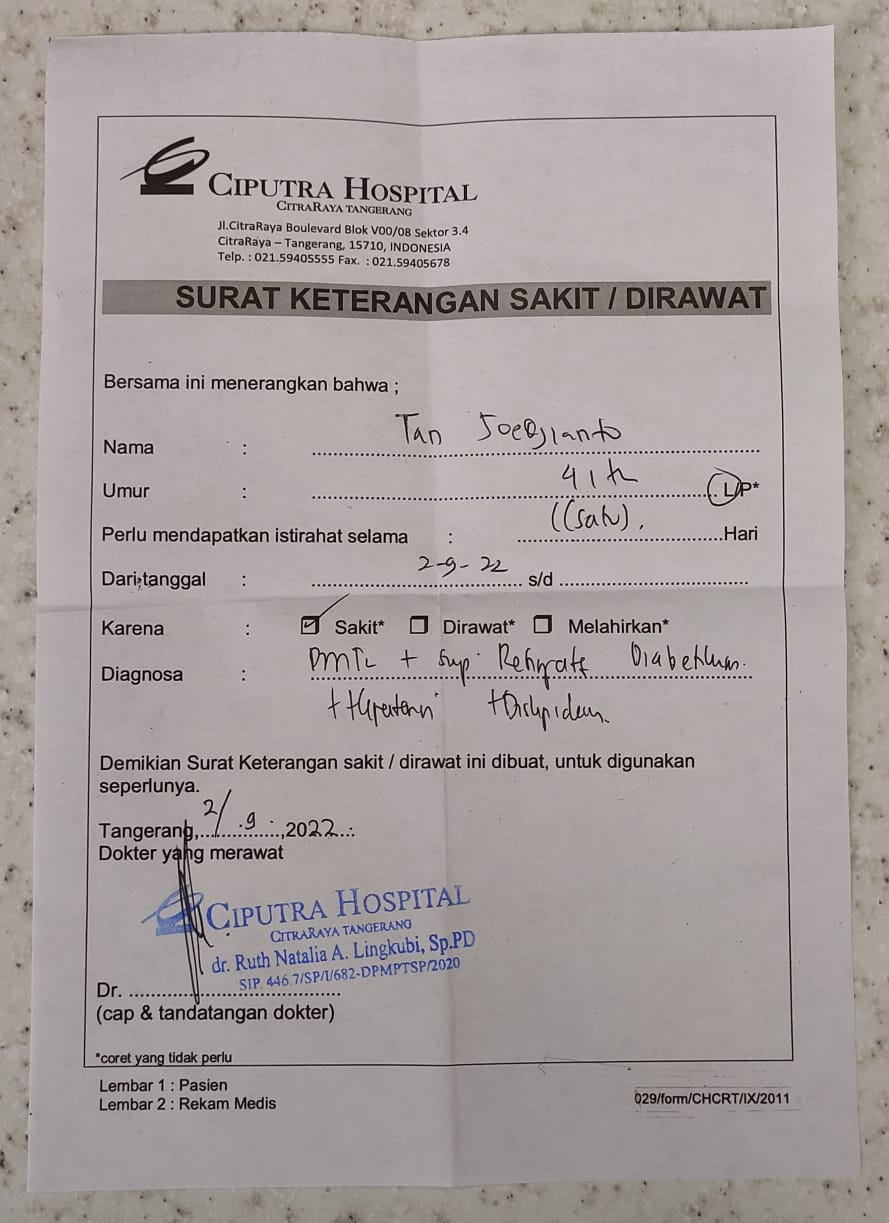 CIPUTRA HOSPITAL
CITRARAYA TANGERANG
Jl.CitraRaya Boulevard Blok V00/08 Sektor 3.4
CitraRaya – Tangerang, 15710, INDONESIA
Telp. : 021.59405555 Fax. : 021.59405678
SURAT KETERANGAN SAKIT / DIRAWAT
Bersama ini menerangkan bahwa ;
Nama : Tan
Umur : 41 th L/P*
Perlu mendapatkan istirahat selama : (satu). Hari
Dari tanggal : 2-9-22 s/d
Karena : Sakit* Dirawat* Melahirkan*
Diagnosa : + Diabetikum.
+ +
Demikian Surat Keterangan sakit / dirawat ini dibuat, untuk digunakan
seperlunya.
Tangerang, 2/9, 2022
Dokter yang merawat
CIPUTRA HOSPITAL
CITRARAYA TANGERANG
dr. Ruth Natalia A. Lingkubi, Sp.PD
SIP. 446.7/SP/I/682-DPMPTSP/2020
Dr.
(cap & tandatangan dokter)
*coret yang tidak perlu
Lembar 1 : Pasien
Lembar 2 : Rekam Medis
029/form/CHCRT/IX/2011